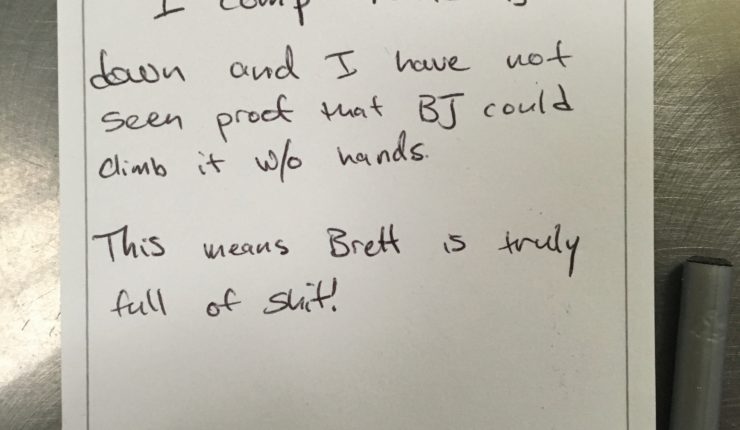 I
down and I have not
seen proof that BJ could
climb it w/o hands.
This means Brett is truly
full of shit!